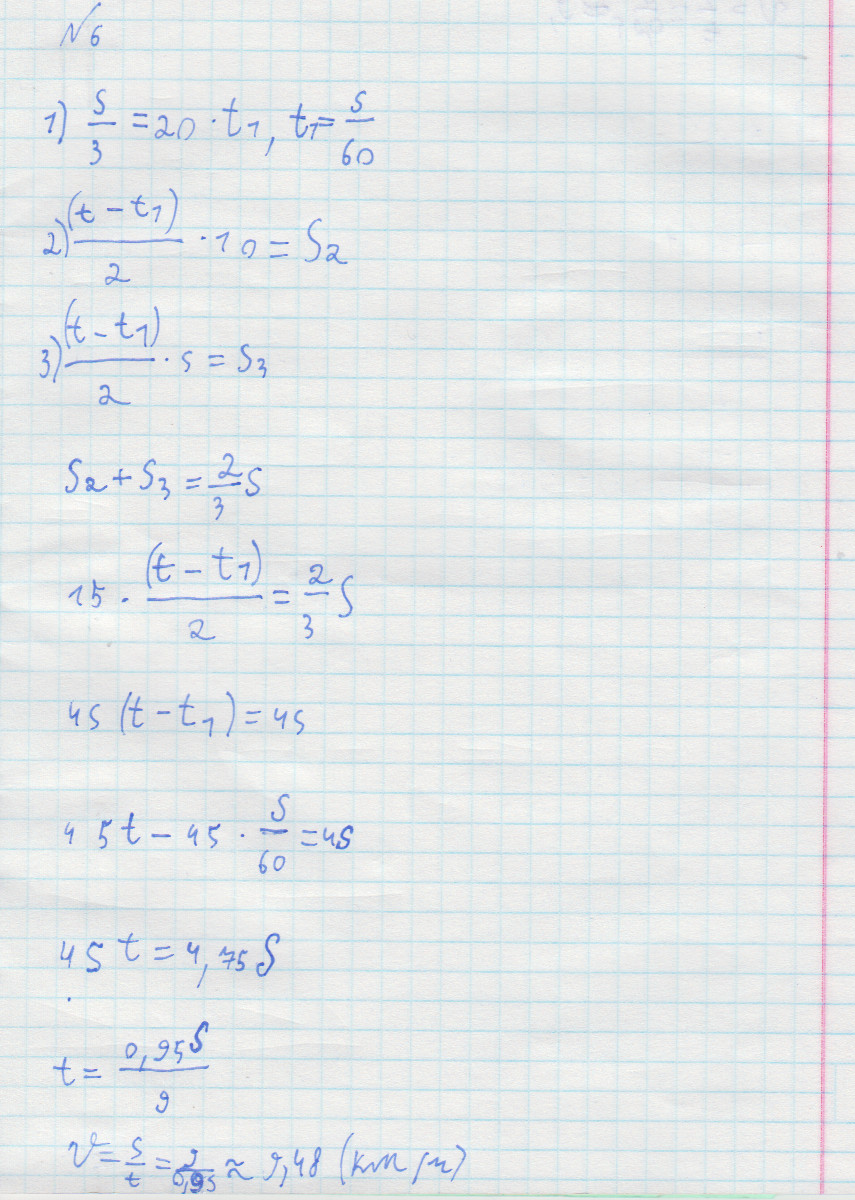 №6
1) S/3 = 20 · t₁, t₁ = S/60
2) (t - t₁)/2 · 10 = S₂
3) (t - t₁)/2 · 5 = S₃
S₂ + S₃ = 2/3 S
15 · (t - t₁)/2 = 2/3 S
45 (t - t₁) = 4S
45t - 45 · S/60 = 4S
45t = 4,75S
t = 0,95S/9
V = S/t = 9/0,95 ≈ 9,48 (км/ч)